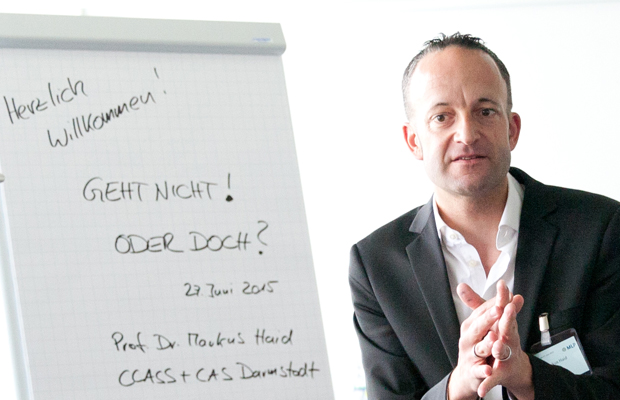 Herzlich
Willkommen!
GEHT NICHT!
ODER DOCH?
27. Juni 2015
Prof. Dr. Markus Haid
CCASS + CAS Darmstadt